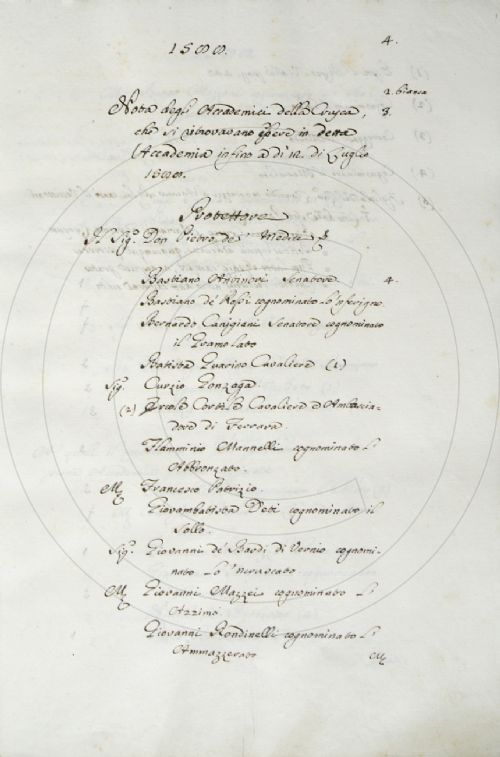 4.
1588.
2. bianca
Nota degl' Accademici della Crusca, 3.
che si ritrovavano essere in detta
Accademia infino a dì 12. di Luglio
Protettore
Il Sig.r Don Pietro de' Medici
Bastiano Antinori Senatore 4.
Bastiano de' Rossi cognominato lo 'nferigno
Bernardo Canigiani Senatore cognominato
il Gramolato
Batista Guarino Cavaliere (1)
Sig. Curzio Gonzaga.
(2) Ercole Cortile Cavaliere e Ambascia-
dore di Ferrara.
Flamminio Mannelli cognominato l'
Abbronzato.
M. Francesco Patrizio.
Giovambatista Deti cognominato il
Sollo.
Sig. Giovanni de' Bardi di Vernio cognomi-
nato lo 'ncruscato
M. Giovanni Mazzei cognominato l'
Azzimo
Giovanni Rondinelli cognominato l'
Ammazzerato M.